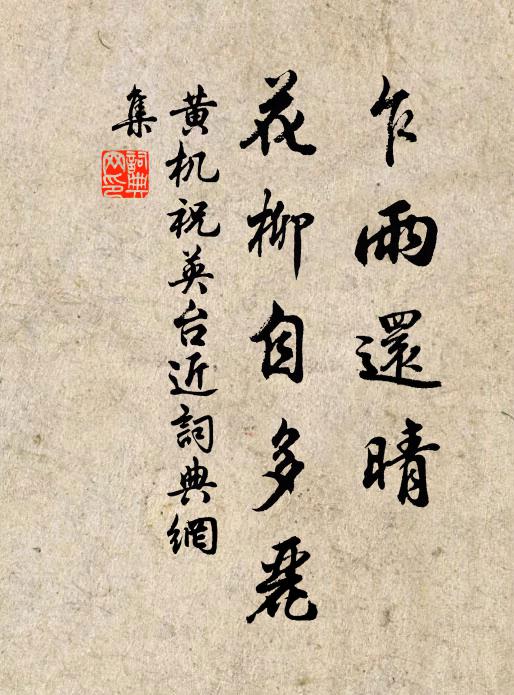 乍雨還晴
花柳自多麗
黄机祝英台近詞典網
集
詞典
网印